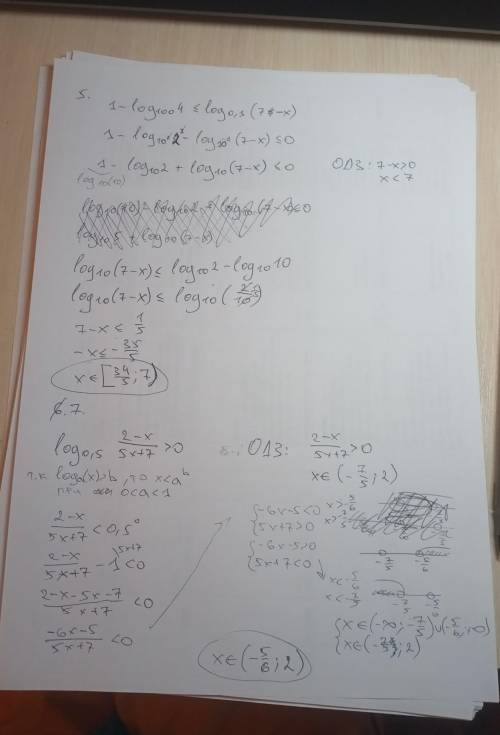 5.
1 - log₁₀₀4 ≤ log₀,₁(7-x)
1 - log₁₀²2² - log₁₀⁻¹(7-x) ≤ 0
1 - log₁₀2 + log₁₀(7-x) ≤ 0
log₁₀(10)
ОДЗ: 7-x>0
x < 7
log₁₀(7-x) ≤ log₁₀2 - log₁₀10
log₁₀(7-x) ≤ log₁₀(2/10)
7-x ≤ 1/5
-x ≤ -35/5
x ∈ [34/5; 7)
6.7.
log₀,₅ (2-x)/(5x+7) > 0
т.к logₐ(x)>b, то x<aᵇ
при 0<a<1
(2-x)/(5x+7) < 0,5⁰
(2-x)/(5x+7) - 1 < 0
(2-x-5x-7)/(5x+7) < 0
(-6x-5)/(5x+7) < 0
ОДЗ: (2-x)/(5x+7) > 0
x ∈ (-7/5; 2)
{-6x-5<0 x>-5/6
{5x+7>0 x>-7/5
-7/5 -5/6
{-6x-5>0
{5x+7<0
x<-5/6
x<-7/5
-7/5 -5/6
{x ∈ (-∞; -7/5)∪(-5/6; +∞)
{x ∈ (-7/5; 2)
x ∈ (-5/6; 2)